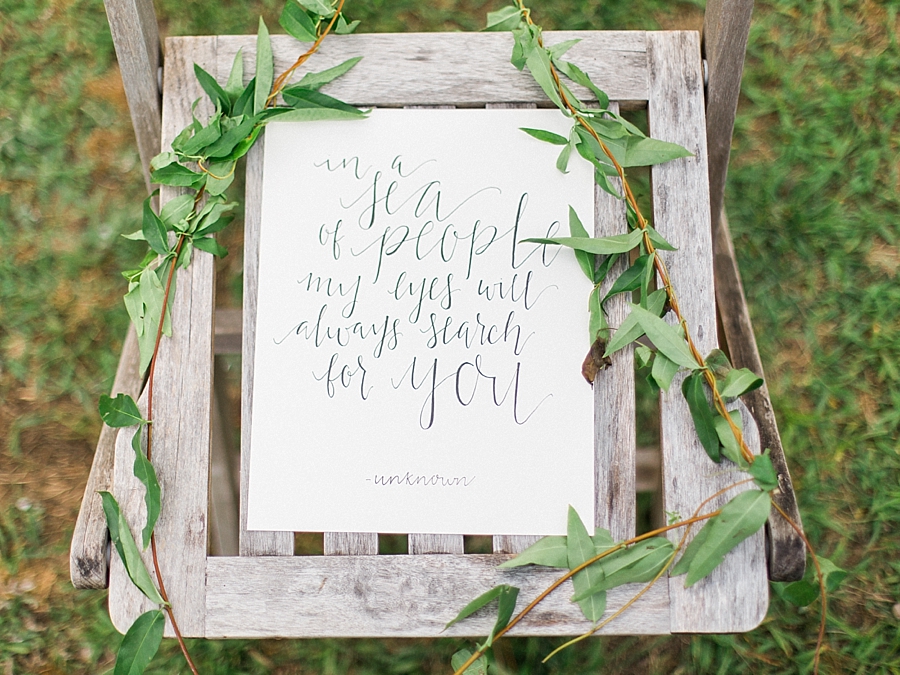 in a
sea
of people
my eyes will
always search
for you
-unknown